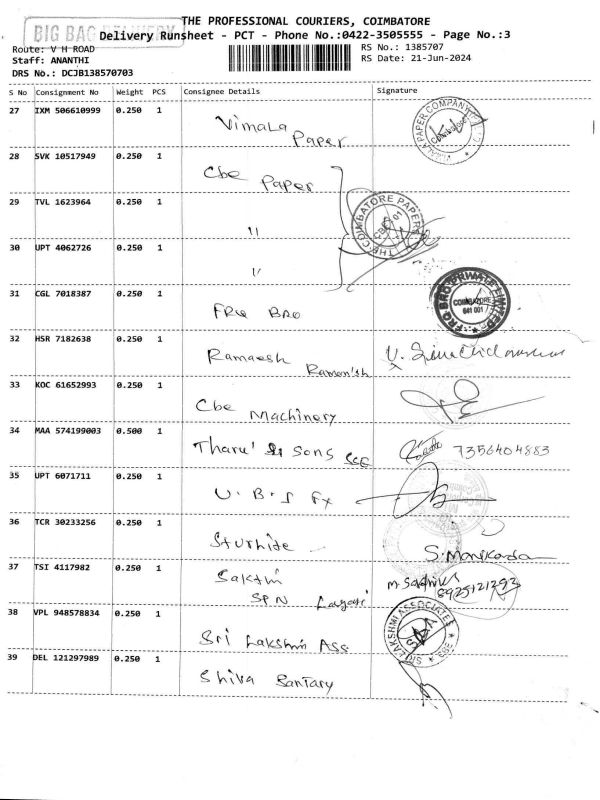 THE PROFESSIONAL COURIERS, COIMBATORE
BIG BAG DELIVERY
Delivery Runsheet - PCT - Phone No.:0422-3505555 - Page No.:3
Route: V H ROAD
RS No.: 1385707
Staff: ANANTHI
RS Date: 21-Jun-2024
DRS No.: DCJB138570703
S No Consignment No Weight PCS Consignee Details Signature
27 IXM 506610999 0.250 1 Vimala Paper
VIMALA PAPER COMPANY
28 SVK 10517949 0.250 1 Cbe Paper
29 TVL 1623964 0.250 1 "
THE COIMBATORE PAPERS
30 UPT 4062726 0.250 1 "
31 CGL 7018387 0.250 1 FRQ BRO
FRQ BRO PRIVATE LIMITED
COIMBATORE
641 001
32 HSR 7182638 0.250 1 Ramaesh
33 KOC 61652993 0.250 1 Cbe Machinery
34 MAA 574199003 0.500 1 Tharu' Sons 7356404883
35 UPT 6071711 0.250 1 U.B.S Fx
36 TCR 30233256 0.250 1 S.Manikanda
37 TSI 4117982 0.250 1 Sakthi
SPN 8925121293
38 VPL 948578834 0.250 1 Sri Lakshmi Ass
SRI LAKSHMI ASSOCIATES
39 DEL 121297989 0.250 1 Shiva Sanitary